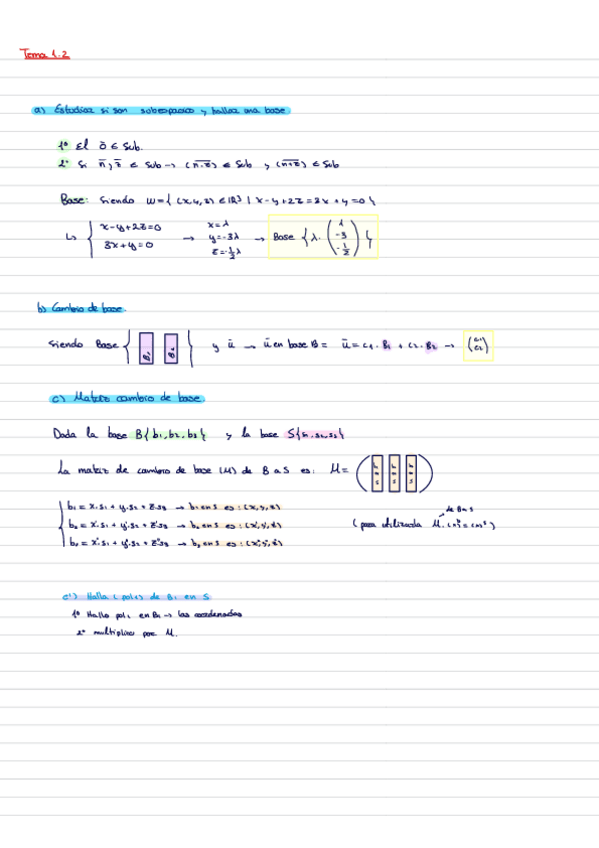 Tema 1.2
a) Estudiar si son subespacios y hallar una base
1º El ō ∈ Sub.
2º Si
∈ Sub →
∈ Sub y
∈ Sub
Base: Siendo W = { (x, y, z) ∈ ℝ³ | x - y + 2z = 3x + y = 0 }
↳ { x - y + 2z = 0
3x + y = 0
→ x = λ
y = -3λ
z = -1/2 λ
→ Base { λ · (1
-3
-1/2) }
b) Cambio de base.
Siendo Base { B1 B2 } y ū → ū en base B = ū = c1 · B1 + c2 · B2 → (c1
c2)
c) Matriz cambio de base.
Dada la base B{b1, b2, b3} y la base S{s1, s2, s3}
La matriz de cambio de base (M) de B a S es: M =
b1 = x·s1 + y·s2 + z·s3 → b1 en S es: (x, y, z)
de B a S
(para utilizarla M.
→ b2 en S es:
→ b3 en S es:
c') Halla
de B1 en S
1º Hallo
en B1 → las coordenadas
2º multiplico por M.